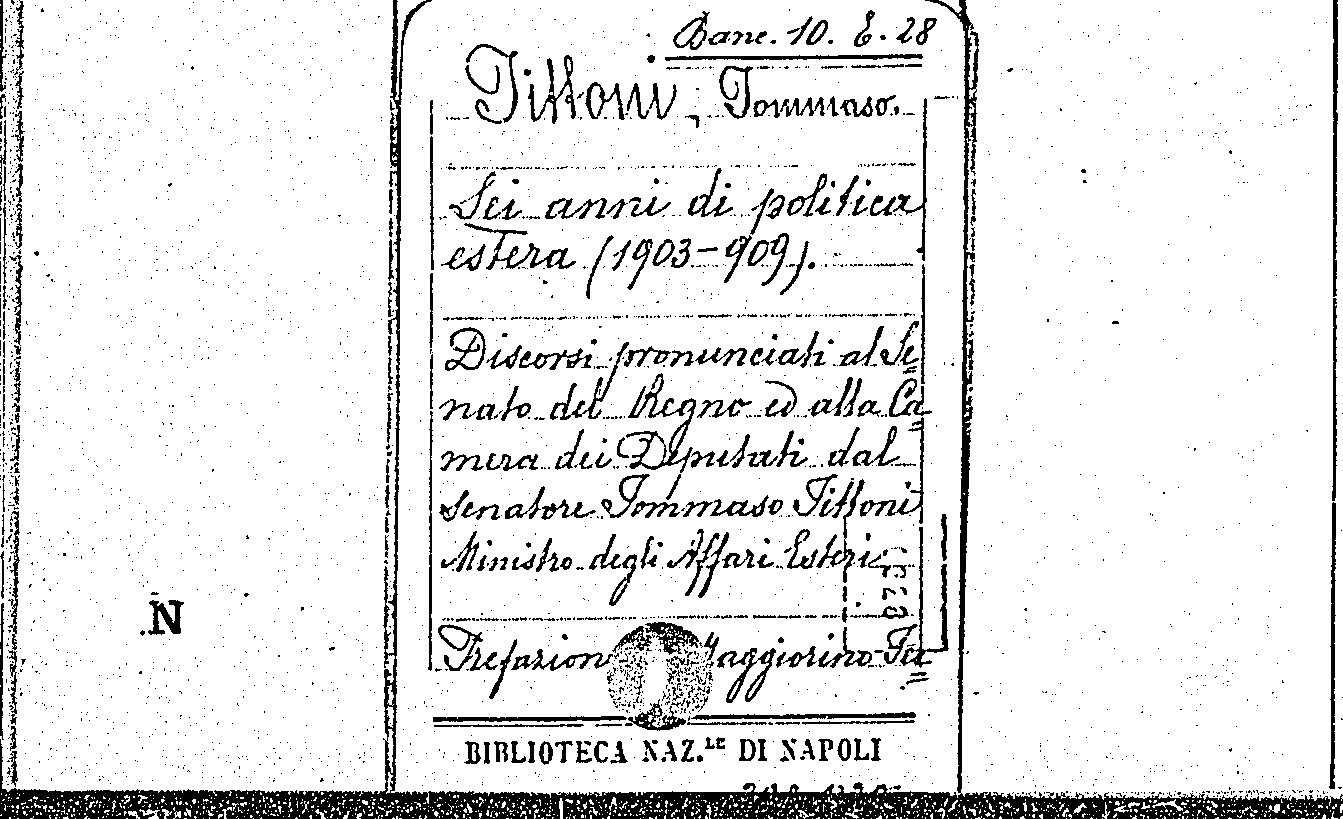 Banc. 10. E. 28
Tittoni, Tommaso.
Sei anni di politica
estera (1903-909).
Discorsi pronunciati al Se=
nato del Regno ed alla Ca=
mera dei Deputati dal
Senatore Tommaso Tittoni
Ministro degli Affari Esteri.
Prefazion Maggiorino Fa=
N
BIBLIOTECA NAZ.LE DI NAPOLI